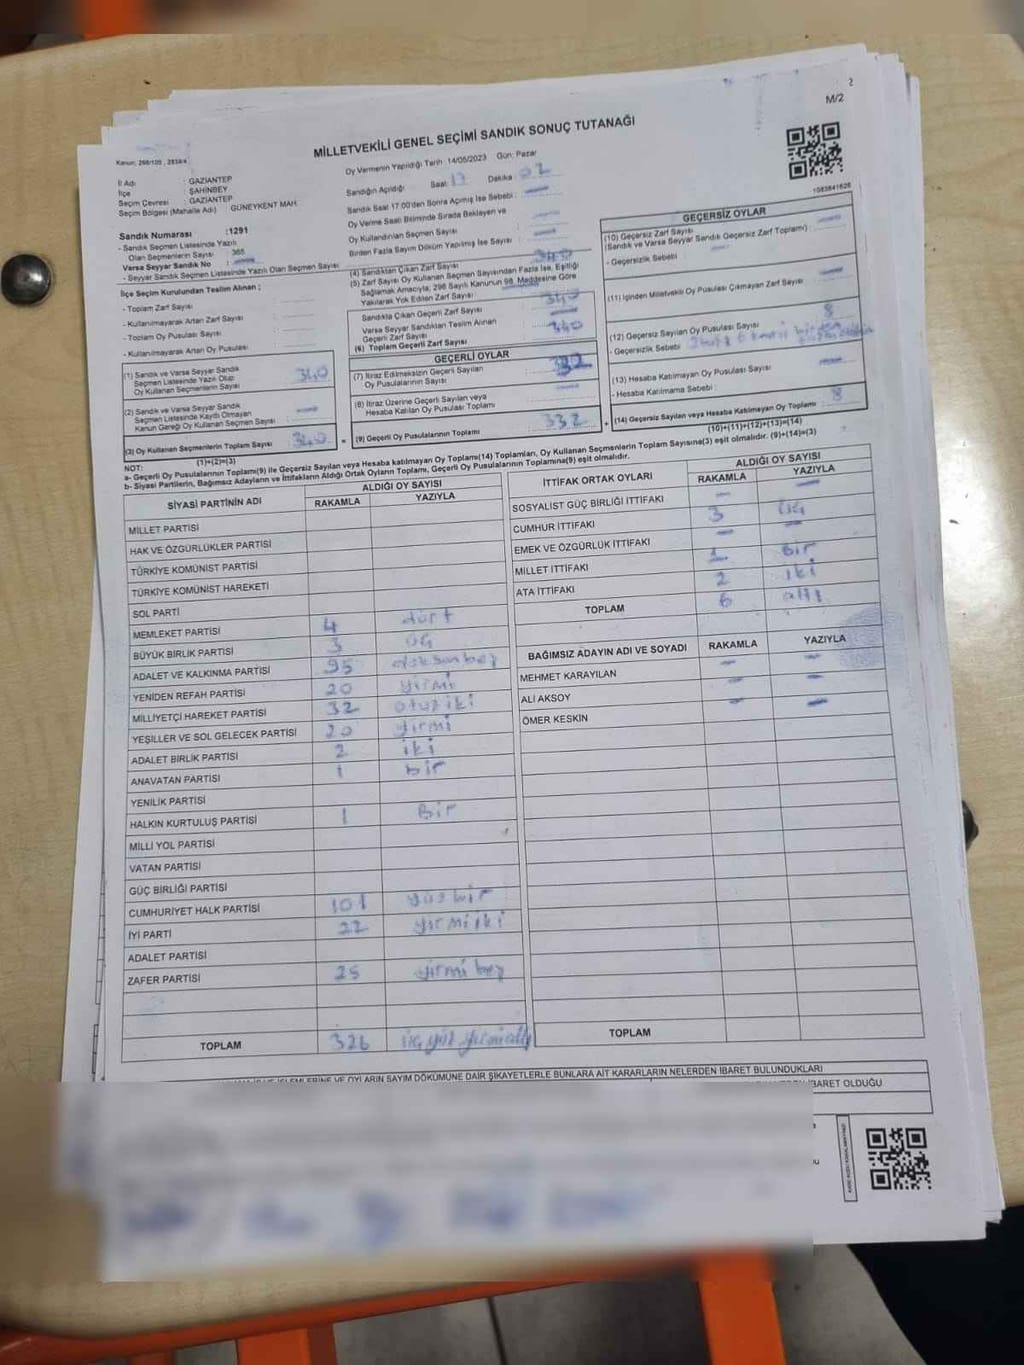 2
M/2
Kanun; 298/105 , 2839/4
MİLLETVEKİLİ GENEL SEÇİMİ SANDIK SONUÇ TUTANAĞI
İl Adı : GAZİANTEP
İlçe : ŞAHİNBEY
Seçim Çevresi : GAZİANTEP
Seçim Bölgesi (Mahalle Adı) GÜNEYKENT MAH.
Sandık Numarası :1291
- Sandık Seçmen Listesinde Yazılı
Olan Seçmenlerin Sayısı : 365
Varsa Seyyar Sandık No :
- Seyyar Sandık Seçmen Listesinde Yazılı Olan Seçmen Sayısı
Oy Vermenin Yapıldığı Tarih :14/05/2023 Gün: Pazar
Sandığın Açıldığı Saat: 17 Dakika : 02
Sandık Saat 17:00'den Sonra Açılmış İse Sebebi :
Oy Verme Saati Bitiminde Sırada Bekleyen ve
Oy Kullandırılan Seçmen Sayısı
Birden Fazla Sayım Döküm Yapılmış İse Sayısı
1083841626
İlçe Seçim Kurulundan Teslim Alınan ;
- Toplam Zarf Sayısı
- Kullanılmayarak Artan Zarf Sayısı
- Toplam Oy Pusulası Sayısı
- Kullanılmayarak Artan Oy Pusulası
(1) Sandık ve Varsa Seyyar Sandık
Seçmen Listesinde Yazılı Olup
Oy Kullanan Seçmenlerin Sayısı 340
(2) Sandık ve Varsa Seyyar Sandık
Seçmen Listesinde Kaydı Olmayan
Kanun Gereği Oy Kullanan Seçmenlerin Sayısı
(3) Oy Kullanan Seçmenlerin Toplam Sayısı 340 =
(1)+(2)=(3)
(4) Sandıktan Çıkan Zarf Sayısı 340
(5) Zarf Sayısı Oy Kullanan Seçmen Sayısından Fazla İse, Eşitliği
Sağlamak Amacıyla; 298 Sayılı Kanunun 98. Maddesine Göre
Yakılarak Yok Edilen Zarf Sayısı :
Sandıkta Çıkan Geçerli Zarf Sayısı 340
Varsa Seyyar Sandıktan Teslim Alınan
Geçerli Zarf Sayısı
(6) Toplam Geçerli Zarf Sayısı 340
GEÇERLİ OYLAR
(7) İtiraz Edilmeksizin Geçerli Sayılan
Oy Pusulalarının Sayısı 332
(8) İtiraz Üzerine Geçerli Sayılan veya
Hesaba Katılan Oy Pusulası Toplamı
(9) Geçerli Oy Pusulalarının Toplamı 332 +
GEÇERSİZ OYLAR
(10) Geçersiz Zarf Sayısı
(Sandık ve Varsa Seyyar Sandık Geçersiz Zarf Toplamı) :
- Geçersizlik Sebebi :
(11) İçinden Milletvekili Oy Pusulası Çıkmayan Zarf Sayısı
(12) Geçersiz Sayılan Oy Pusulası Sayısı 8
- Geçersizlik Sebebi :
(13) Hesaba Katılmayan Oy Pusulası Sayısı
- Hesaba Katılmama Sebebi :
(14) Geçersiz Sayılan veya Hesaba Katılmayan Oy Toplamı : 8
(10)+(11)+(12)+(13)=(14)
NOT:
a- Geçerli Oy Pusulalarının Toplamı(9) ile Geçersiz Sayılan veya Hesaba katılmayan Oy Toplamı(14) Toplamları, Oy Kullanan Seçmenlerin Toplam Sayısına(3) eşit olmalıdır. (9)+(14)=(3)
b- Siyasi Partilerin, Bağımsız Adayların ve İttifakların Aldığı Ortak Oyların Toplamı, Geçerli Oy Pusulalarının Toplamına(9) eşit olmalıdır.
SİYASİ PARTİNİN ADI ALDIĞI OY SAYISI
RAKAMLA YAZIYLA
MİLLET PARTİSİ
HAK VE ÖZGÜRLÜKLER PARTİSİ
TÜRKİYE KOMÜNİST PARTİSİ
TÜRKİYE KOMÜNİST HAREKETİ
SOL PARTİ
MEMLEKET PARTİSİ 4 dört
BÜYÜK BİRLİK PARTİSİ 3 üç
ADALET VE KALKINMA PARTİSİ 95 doksan beş
YENİDEN REFAH PARTİSİ 20 yirmi
MİLLİYETÇİ HAREKET PARTİSİ 32 otuz iki
YEŞİLLER VE SOL GELECEK PARTİSİ 20 yirmi
ADALET BİRLİK PARTİSİ 2 iki
ANAVATAN PARTİSİ 1 bir
YENİLİK PARTİSİ
HALKIN KURTULUŞ PARTİSİ 1 Bir
MİLLİ YOL PARTİSİ
VATAN PARTİSİ
GÜÇ BİRLİĞİ PARTİSİ
CUMHURİYET HALK PARTİSİ 101 yüz bir
İYİ PARTİ 22 yirmi iki
ADALET PARTİSİ
ZAFER PARTİSİ 25 yirmi beş
TOPLAM 326 üç yüz yirmi altı
İTTİFAK ORTAK OYLARI ALDIĞI OY SAYISI
RAKAMLA YAZIYLA
SOSYALİST GÜÇ BİRLİĞİ İTTİFAKI
CUMHUR İTTİFAKI 3 üç
EMEK VE ÖZGÜRLÜK İTTİFAKI
MİLLET İTTİFAKI 1 bir
ATA İTTİFAKI 2 iki
TOPLAM 6 altı
BAĞIMSIZ ADAYIN ADI VE SOYADI RAKAMLA YAZIYLA
MEHMET KARAYILAN
ALİ AKSOY
ÖMER KESKİN
TOPLAM
İŞLEMLERİNE VE OYLARIN SAYIM DÖKÜMÜNE DAİR ŞİKAYETLERLE BUNLARA AİT KARARLARIN NELERDEN İBARET BULUNDUKLARI
İBARET OLDUĞU